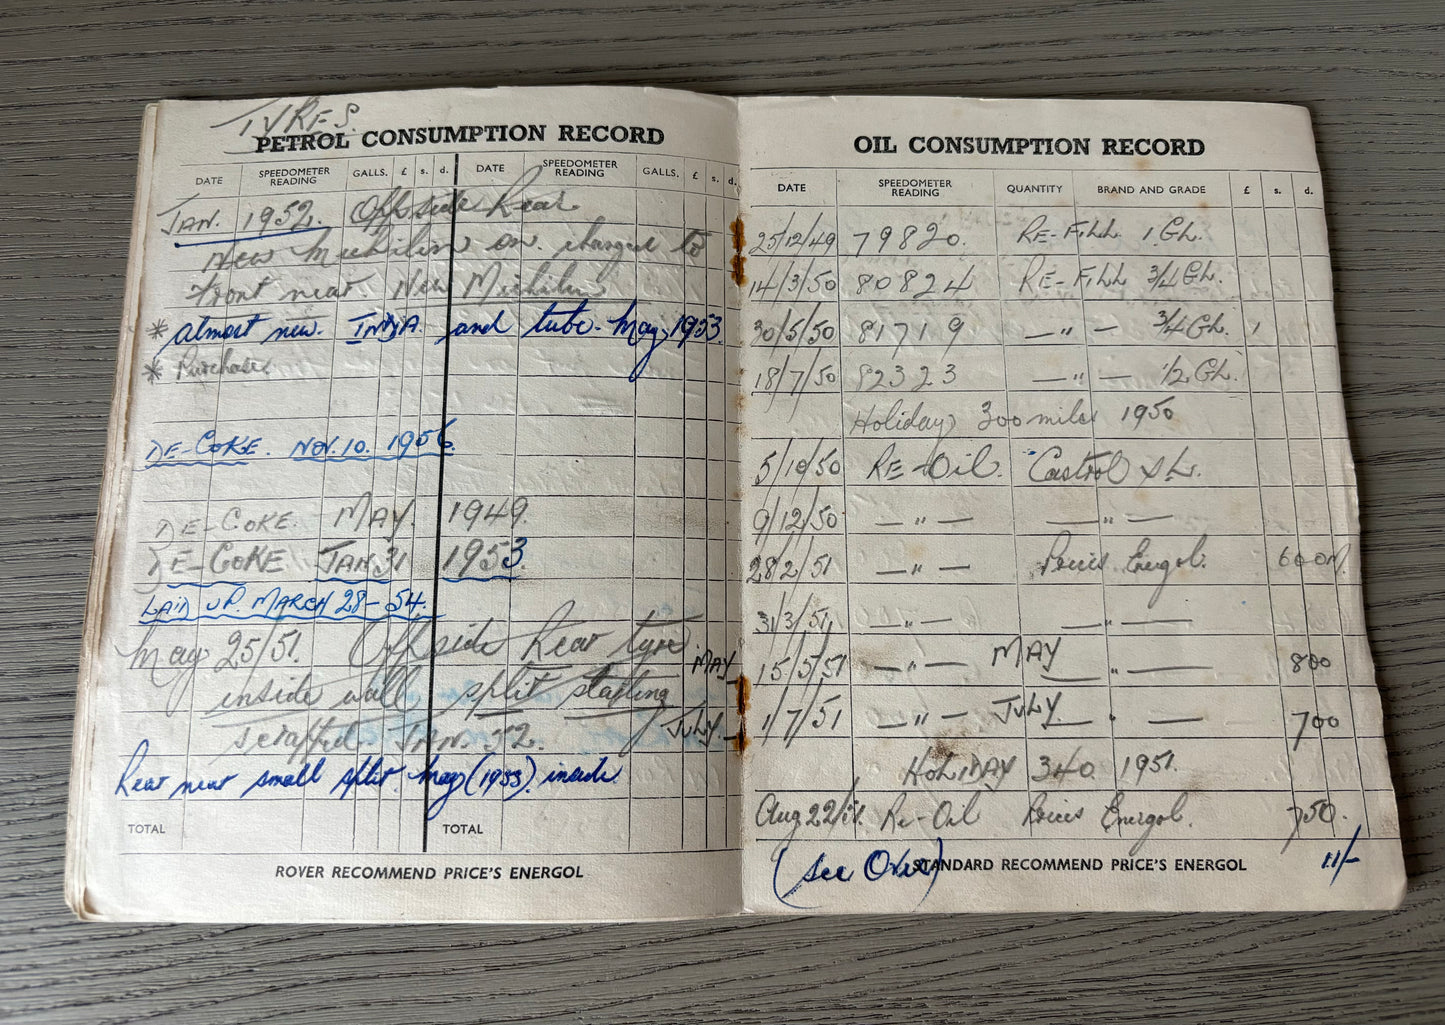 TYRES.
PETROL CONSUMPTION RECORD
DATE SPEEDOMETER READING GALLS. £ s. d. DATE SPEEDOMETER READING GALLS. £ s. d.
JAN. 1952. Offside Rear
New Michilin on. changed to
front near. New Michilin
* almost new. INDIA. and tube. May 1953.
* Purchased
DE-COKE. NOV. 10. 1956.
DE-COKE. MAY. 1949.
DE-COKE JAN 31 1953.
LAID UP. MARCH 28-54.
May 25/51. Offside Rear tyre
inside wall split starting
scrapped. JAN. 52.
Rear near small split. May (1953). inside
TOTAL TOTAL
ROVER RECOMMEND PRICE'S ENERGOL
OIL CONSUMPTION RECORD
DATE SPEEDOMETER READING QUANTITY BRAND AND GRADE £ s. d.
25/12/49 79820. RE-FILL 1.GL.
14/3/50 80824 RE-FILL 3/4 GL.
30/5/50 81719 — " — 3/4 GL.
18/7/50 82323 — " — 1/2 GL.
Holiday 300 miles 1950
5/10/50 RE-OIL. Castrol XL.
9/12/50 — " — — " —
28/2/51 — " — Prices Energol. 600M.
31/3/51, — " — — " —
MAY 15/5/51 — " — MAY — " — 800
JULY. 1/7/51 — " — JULY. — " — 700
HOLIDAY 340. 1951.
Aug 22/51. Re-Oil Prices Energol. 750.
(see Over) STANDARD RECOMMEND PRICE'S ENERGOL 11/-